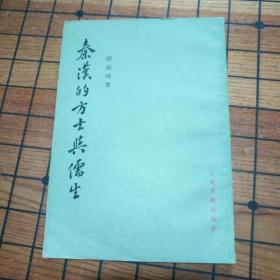 秦漢的方士與儒生
顧頡剛著
上海古籍出版社